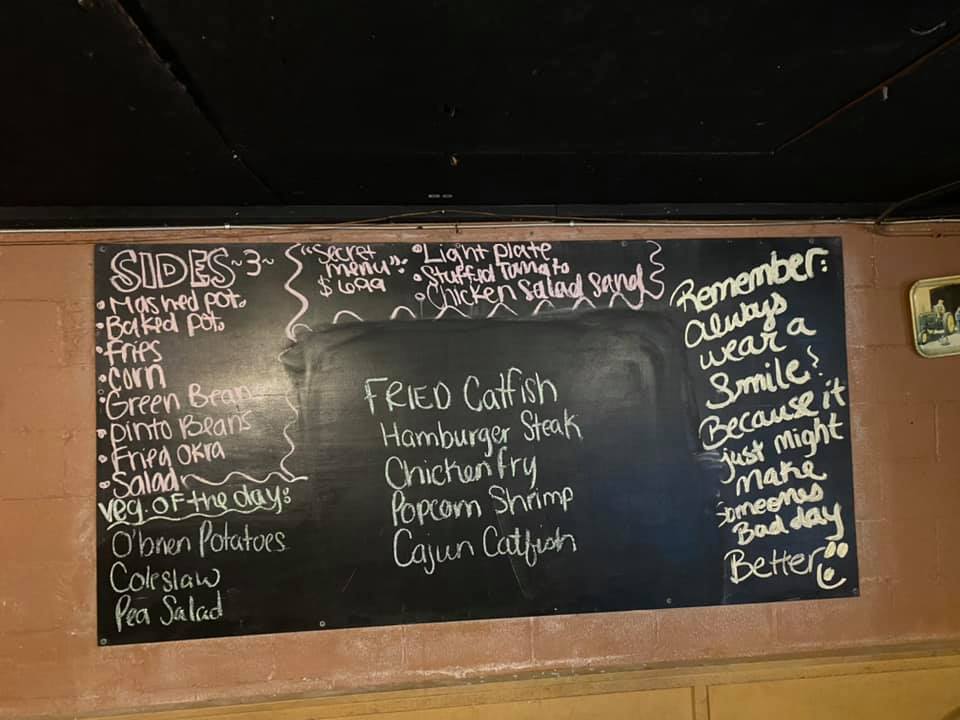 SIDES ~3~
• Mashed pot.
• Baked pot.
• Fries
• Corn
• Green Beans
• pinto Beans
• Fried Okra
• Salad
veg. of the day:
O'brien Potatoes
Coleslaw
Pea Salad
"Secret
menu":
$6.99
• Light plate
• Stuffed Tomato
• Chicken Salad Sand
FRIED Catfish
Hamburger Steak
Chicken fry
Popcorn Shrimp
Cajun Catfish
Remember:
Always
wear a
Smile!
Because it
just might
make
someones
Bad day
Better